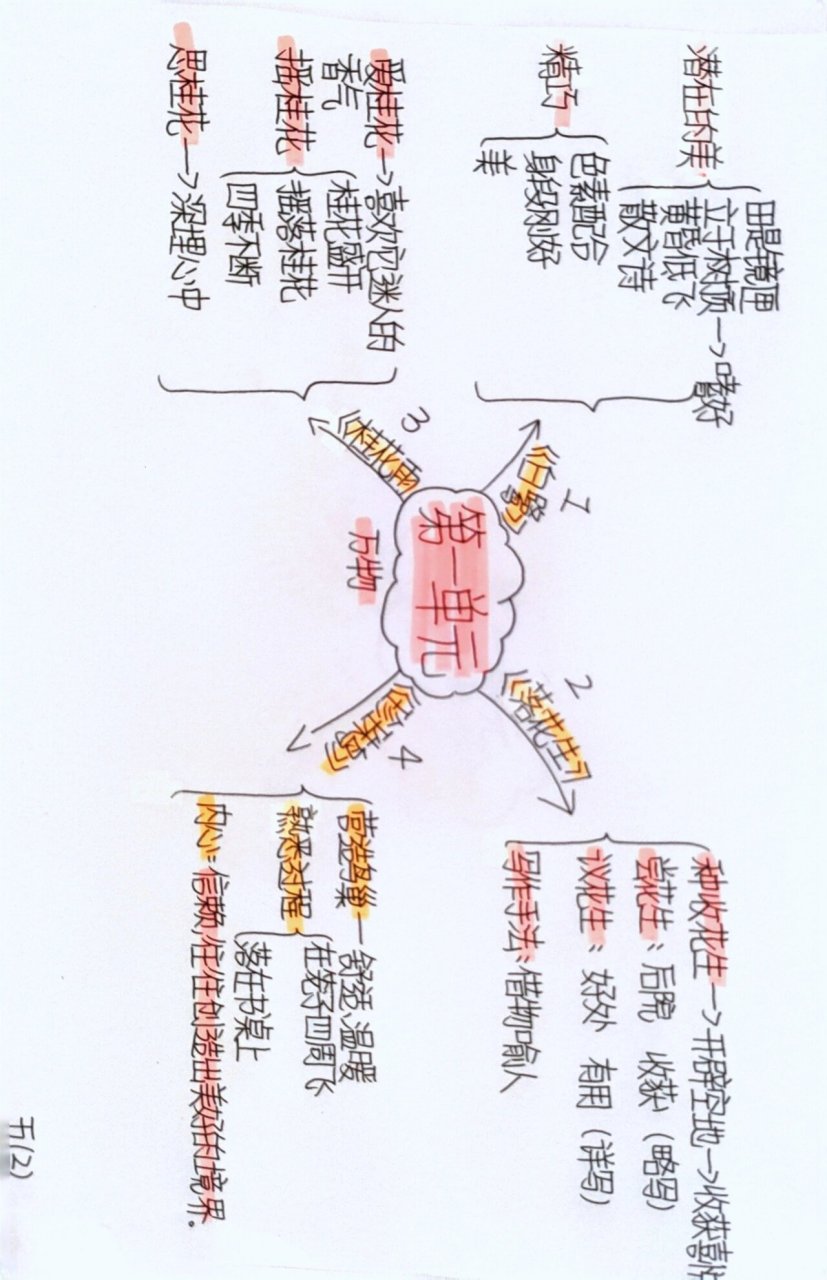 第一单元
万物
1
《白鹭》
精巧
色素配合
身段刚好
美
潜在的美
田是镜匣
立于树顶→嗜好
黄昏低飞
散文诗
2
《落花生》
种收花生→开辟空地→收获喜悦
尝花生：后院 收获（略写）
议花生：好处 有用（详写）
写作手法：借物喻人
3
《桂花雨》
爱桂花→喜欢它迷人的
香气
摇桂花
桂花盛开
摇落桂花
四季不断
思桂花→深埋心中
4
《珍珠鸟》
营造鸟巢—舒适、温暖
熟悉过程
在笼子四周飞
落在书桌上
内心：信赖，往往创造出美好的境界。